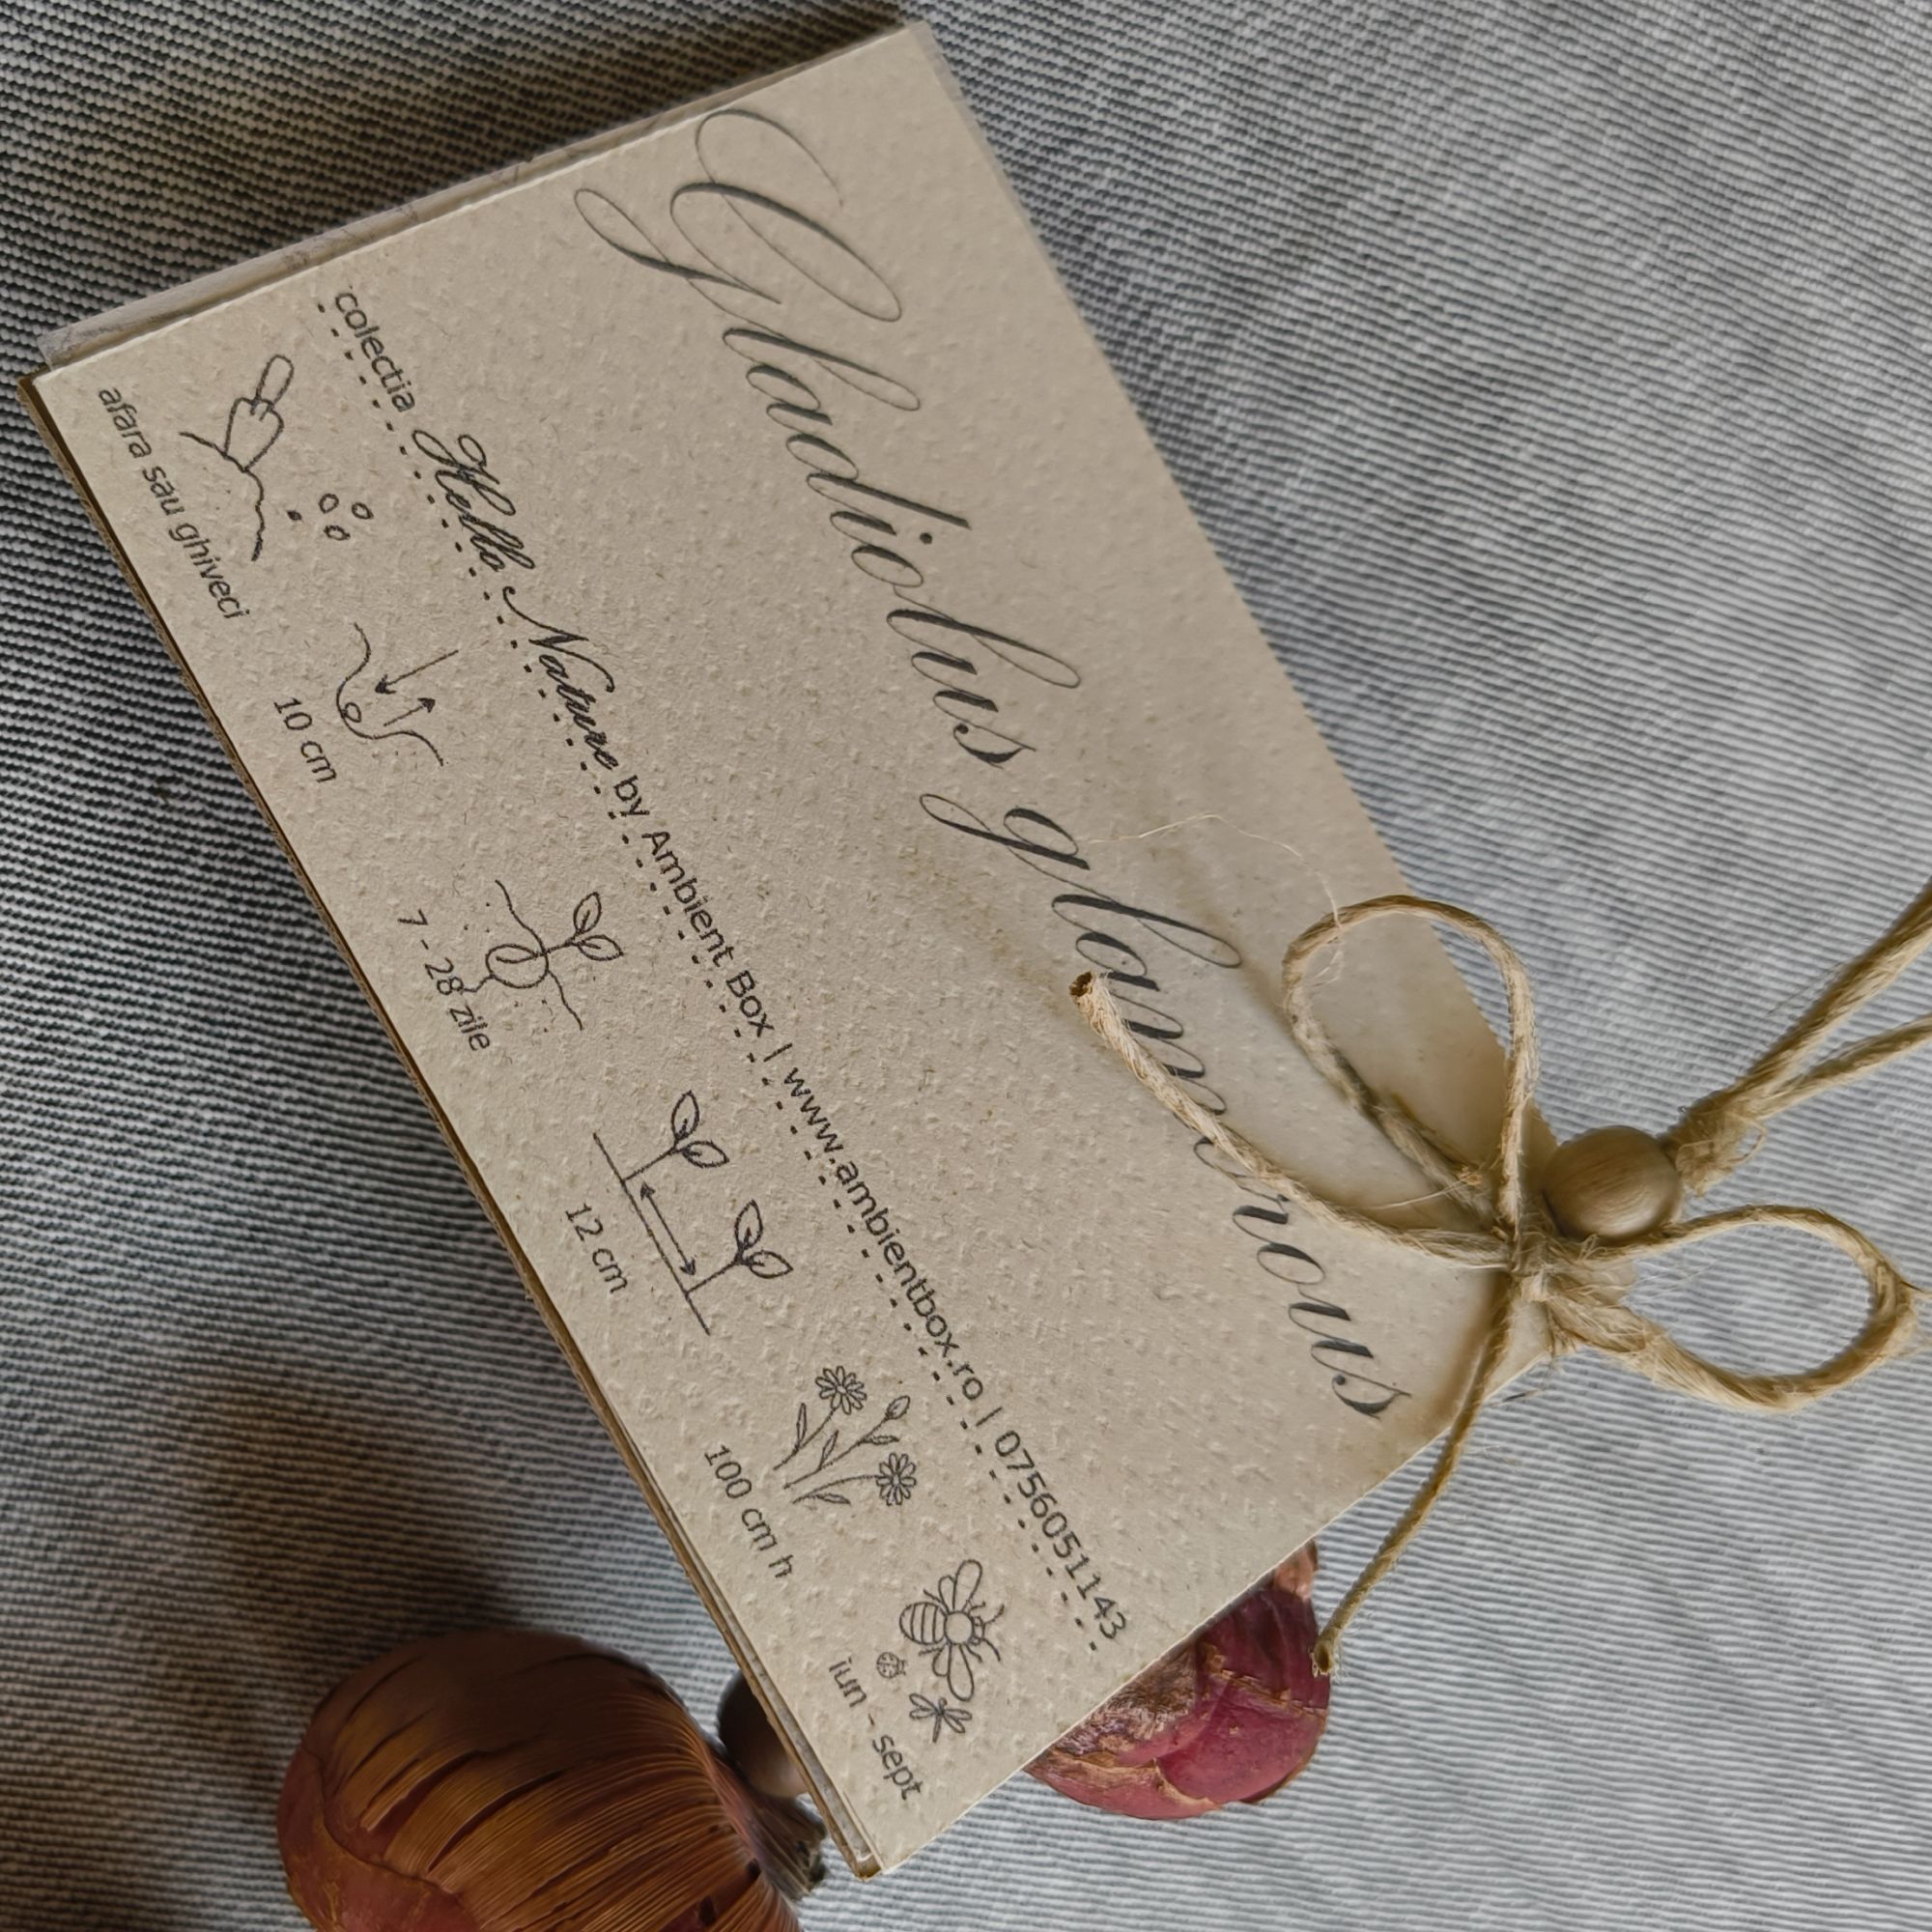 Gladiolus glamorous
colectia Hello Nature by Ambient Box | www.ambientbox.ro | 0756051143
afara sau ghiveci
10 cm
7 - 28 zile
12 cm
100 cm h
iun - sept